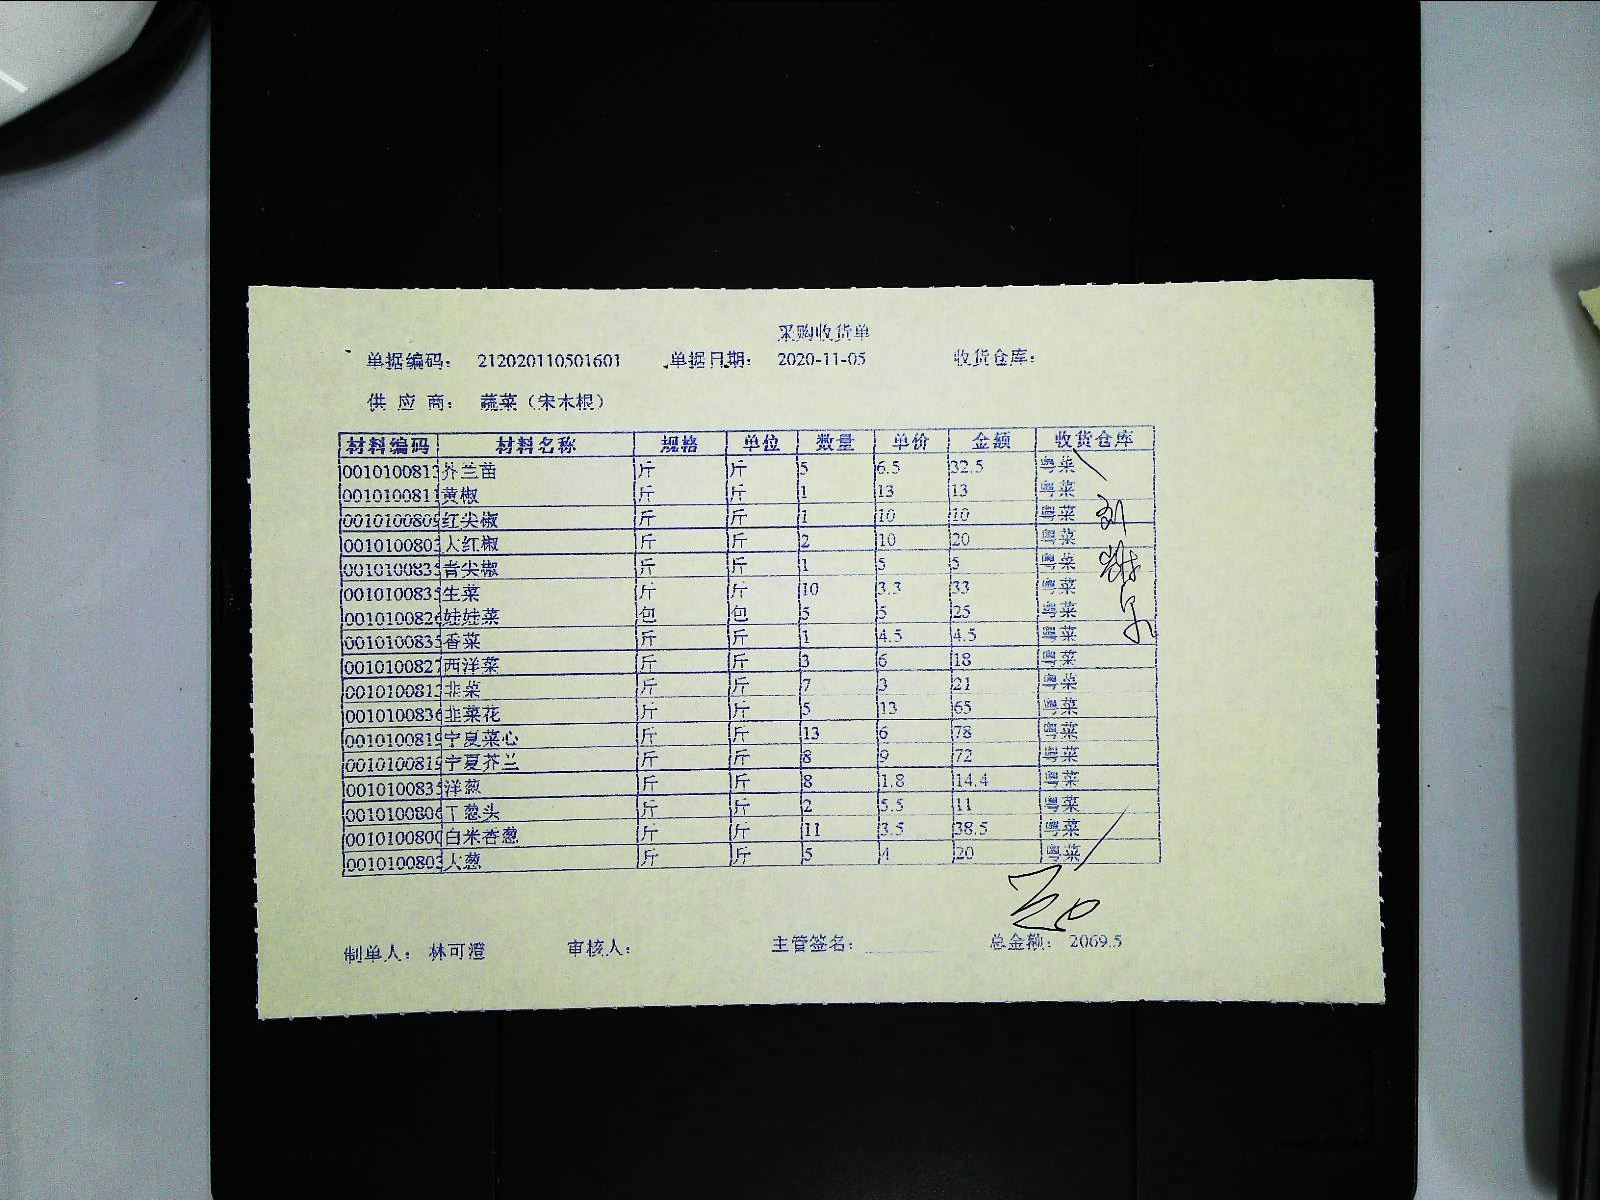 采购收货单
单据编码： 212020110501601 单据日期： 2020-11-05 收货仓库：
供 应 商： 蔬菜（宋木根）
材料编码 材料名称 规格 单位 数量 单价 金额 收货仓库
0010100813 芥兰苗 斤 斤 5 6.5 32.5 粤菜
0010100811 黄椒 斤 斤 1 13 13 粤菜
0010100809 红尖椒 斤 斤 1 10 10 粤菜
0010100803 大红椒 斤 斤 2 10 20 粤菜
0010100835 青尖椒 斤 斤 1 5 5 粤菜
0010100835 生菜 斤 斤 10 3.3 33 粤菜
0010100826 娃娃菜 包 包 5 5 25 粤菜
0010100835 香菜 斤 斤 1 4.5 4.5 粤菜
0010100827 西洋菜 斤 斤 3 6 18 粤菜
0010100813 韭菜 斤 斤 7 3 21 粤菜
0010100836 韭菜花 斤 斤 5 13 65 粤菜
0010100819 宁夏菜心 斤 斤 13 6 78 粤菜
0010100819 宁夏芥兰 斤 斤 8 9 72 粤菜
0010100835 洋葱 斤 斤 8 1.8 14.4 粤菜
0010100806 干葱头 斤 斤 2 5.5 11 粤菜
0010100800 白米香葱 斤 斤 11 3.5 38.5 粤菜
0010100803 大葱 斤 斤 5 4 20 粤菜
制单人： 林可澄 审核人： 主管签名： 总金额： 2069.5